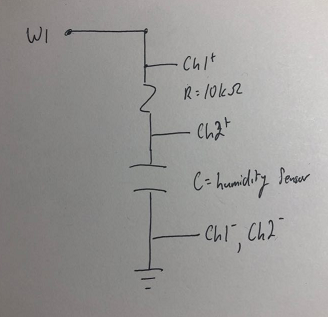 W1
Ch1+
R=10kΩ
Ch2+
C=humidity sensor
Ch1-, Ch2-